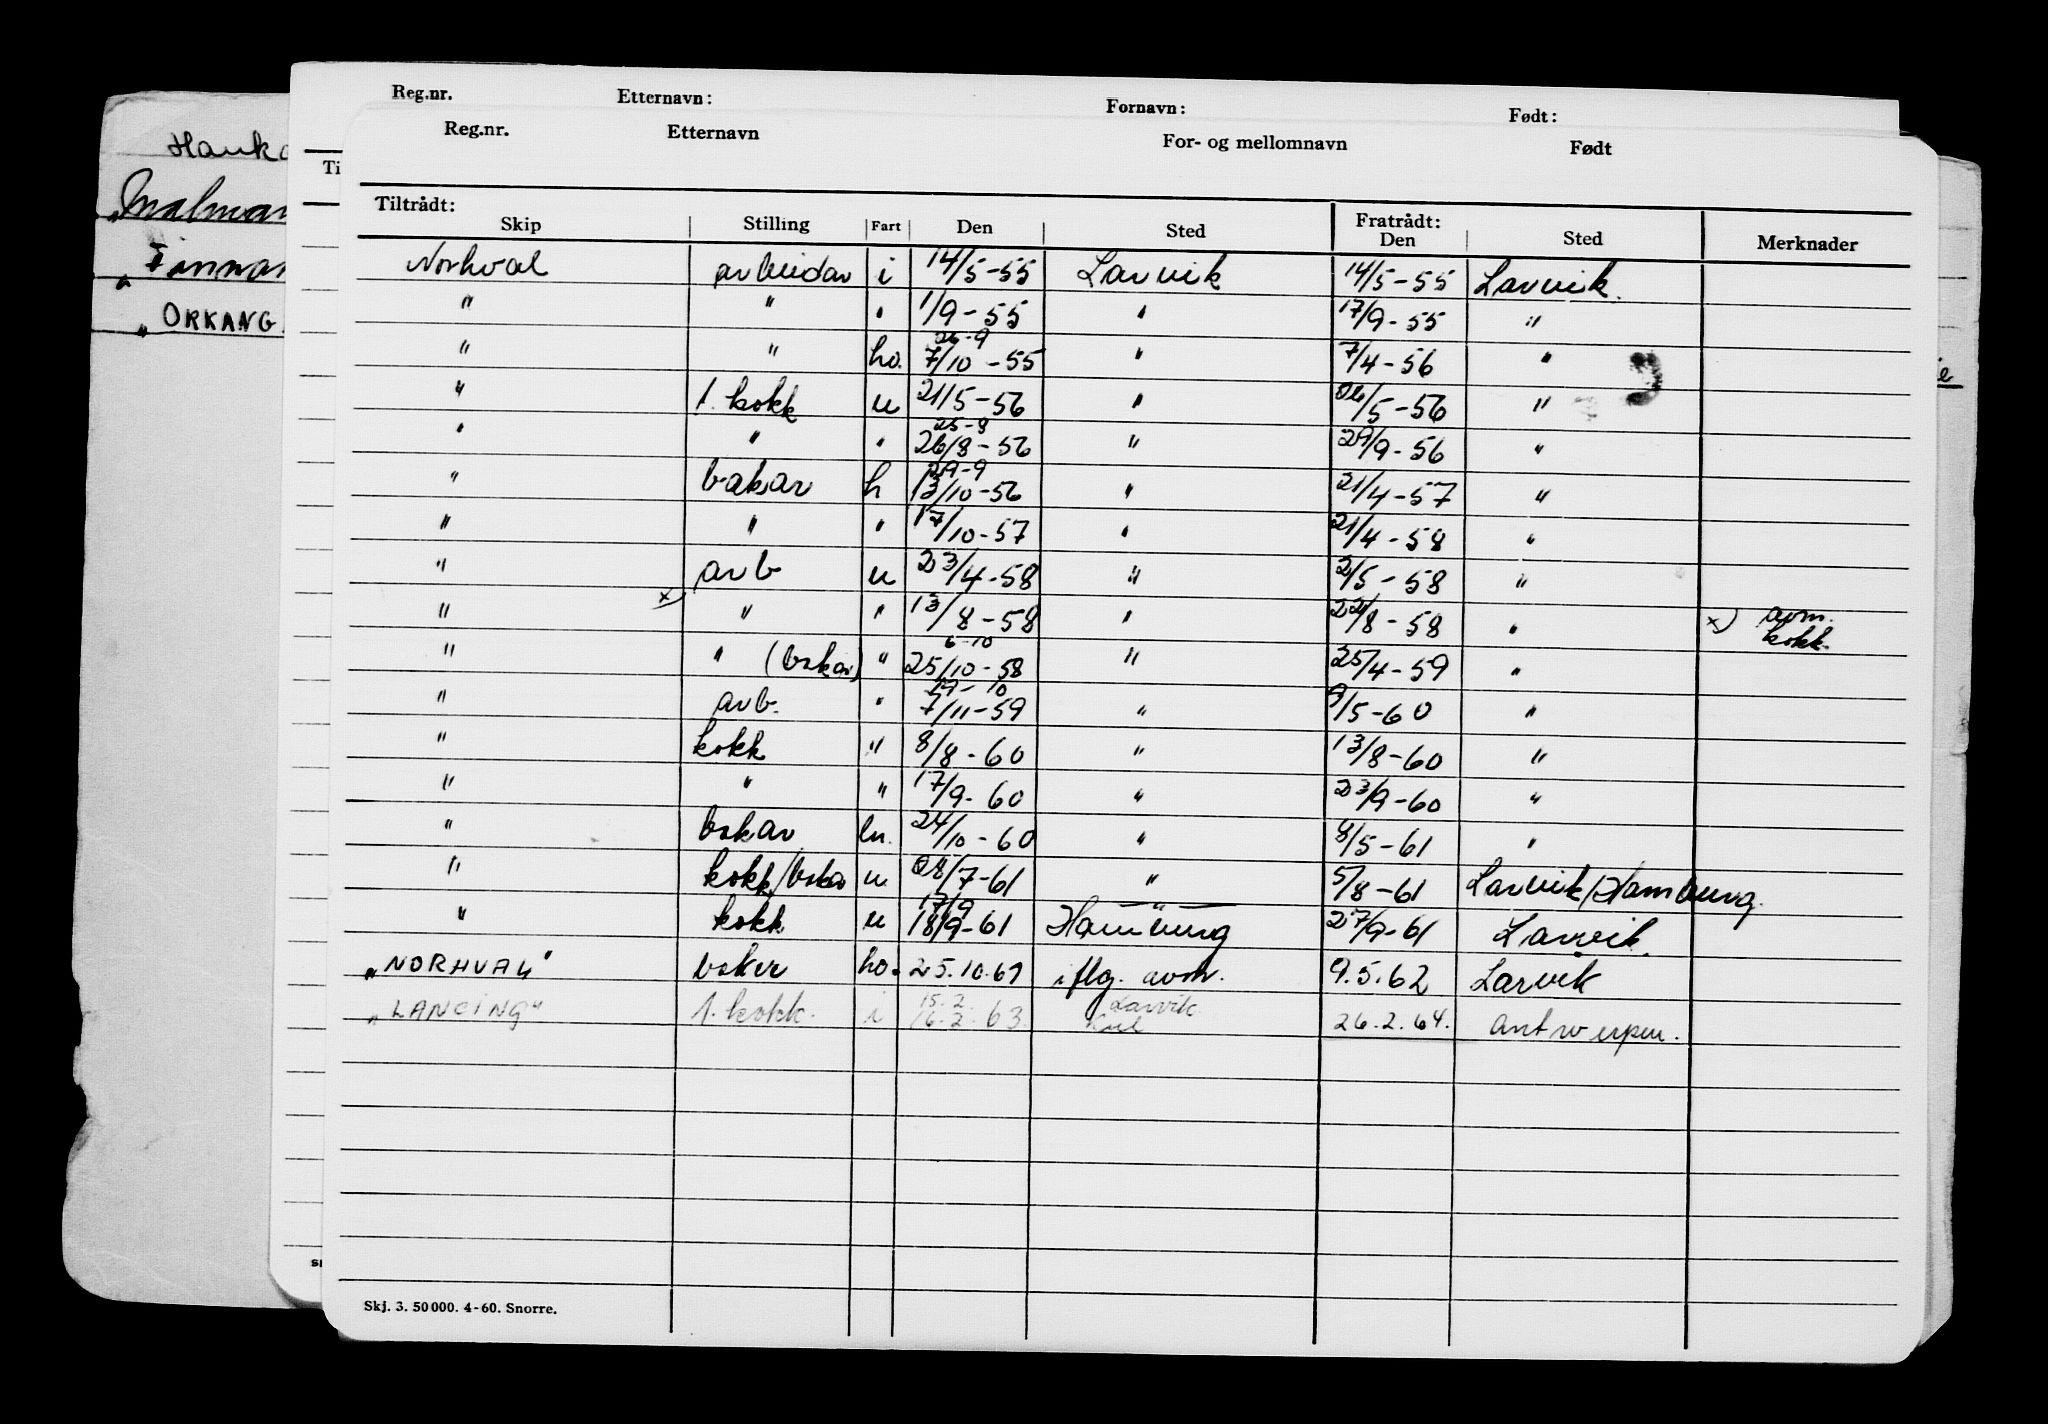 Reg.nr. Etternavn: Fornavn: Født:
Reg.nr. Etternavn For- og mellomnavn Født
Ti
"ORKANG.
Tiltrådt: Fratrådt:
Skip Stilling Fart Den Sted Den Sted Merknader
Norhval arbeidar i 14/5-55 Larvik 14/5-55 Larvik.
" " " 1/9-55 " 17/9-55 "
26-9
" " ho. 7/10-55 " 7/4-56 "
" 1. kokk u 21/5-56 " 26/5-56 "
25-8
" " " 26/8-56 " 29/9-56 "
29-9
" bakar h 13/10-56 " 21/4-57 "
" " " 17/10-57 " 21/4-58 "
" arb u 23/4-58 " 2/5-58 "
" x) " " 13/8-58 " 22/8-58 " x) avm. kokk.
6-10
" " (bakar) " 25/10-58 " 25/4-59 "
19-10
" arb. " 7/11-59 " 9/5-60 "
" kokk " 8/8-60 " 13/8-60 "
" " " 17/9-60 " 23/9-60 "
" bakar 24/10-60 " 8/5-61 "
" kokk/bakar u /7-61 " 5/8-61 Larvik/Hamburg.
17/9
" kokk u 18/9-61 Hamburg 27/9-61 Larvik.
"NORHVAL" baker ho. 25.10.61 iflg. avm. 9.5.62 Larvik
15.2. Larvik.
"LANCING" 1. kokk. i 16.2.63. Kiel 26.2.64. Antwerpen.
Skj. 3. 50000. 4-60. Snorre.